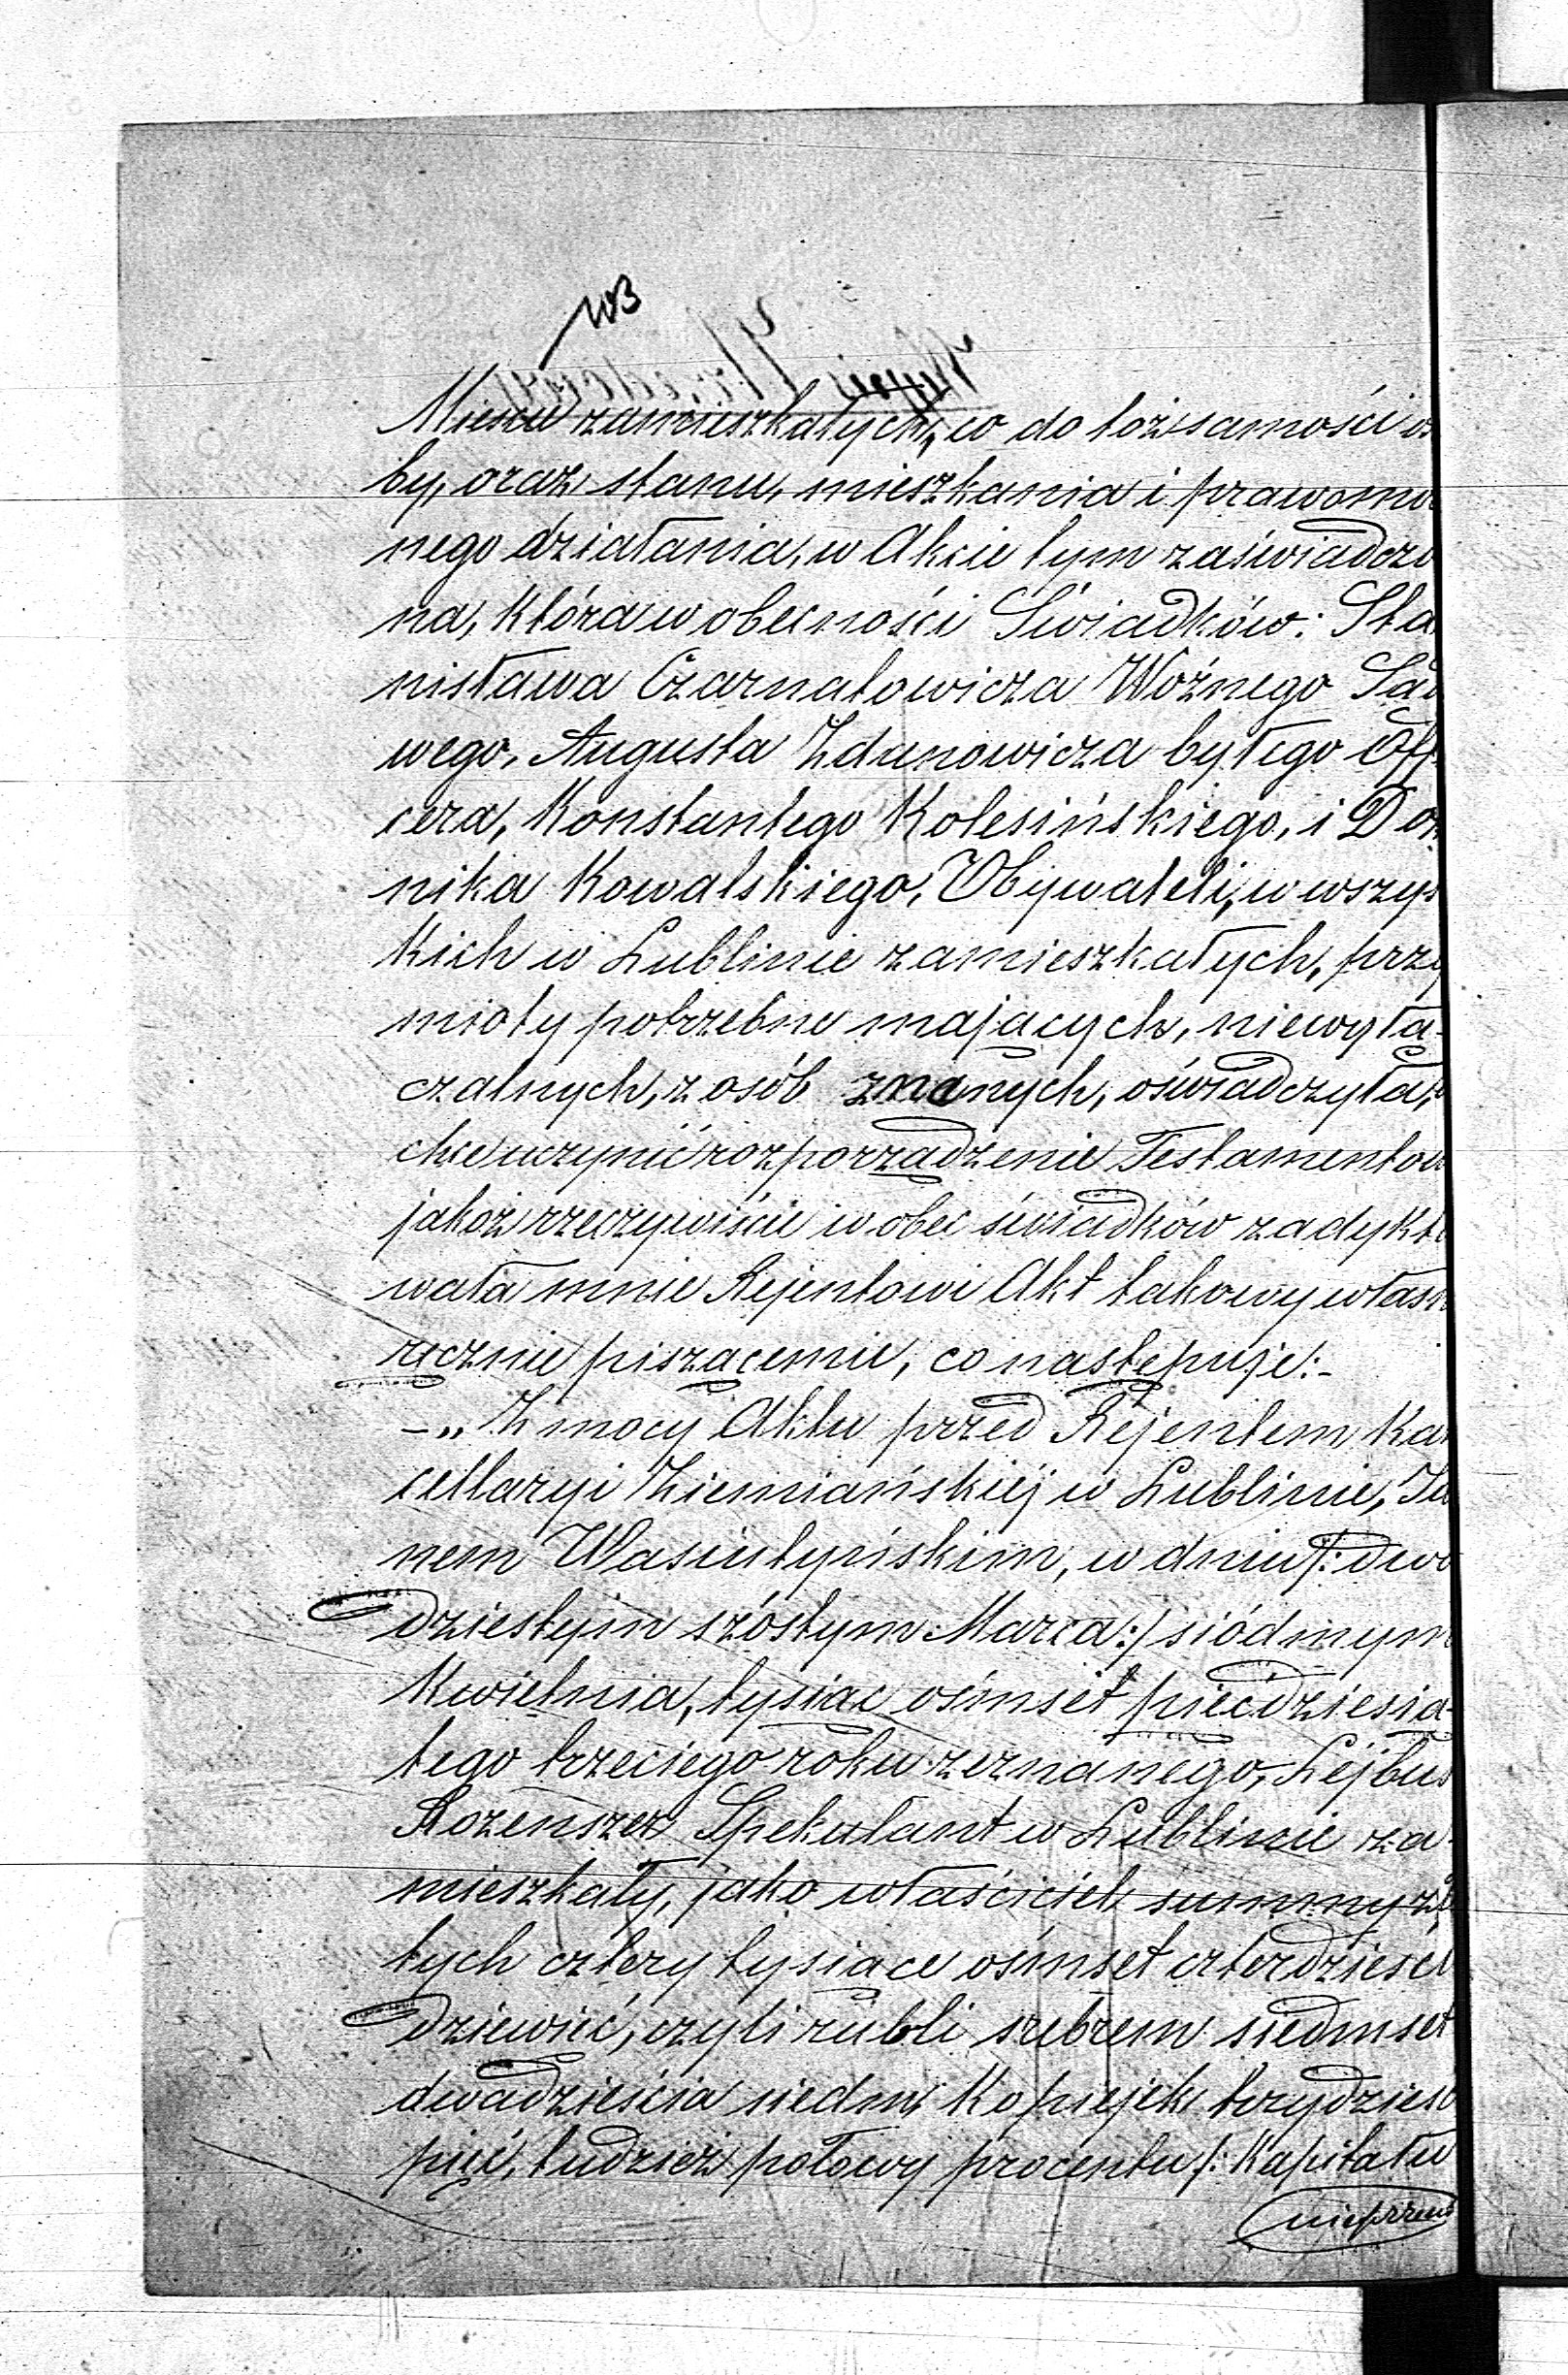 Mieście zamieszkałych, co do tożsamości os
by, oraz stanu, mieszkania i prawomo
nego działania, w Akcie tym zaświadczo
na, która w obecności Świadków: Sta
nisława Czarnatowicza Woźnego Sąd
wego, Augusta Zdanowicza byłego Off
cera, Konstantego Kolesińskiego, i Do
nika Kowalskiego, Obywateli, w wszys
kich w Lublinie zamieszkałych, przy
mioty potrzebne mających, niewyłą-
czalnych, z osób znanych, oświadczyła,
chce uczynić rozporządzenie Testamentow
jakoż rzeczywiście w obec świadków zadykto
wała mnie Rejentowi Akt takowy własn
ręcznie piszącemu, co następuje:-
-„ Z mocy Aktu przed Rejentem Kan
cellaryi Ziemiańskiéj w Lublinie, Ja
nem Wasiutyńskim, w dniu /: dwu
dziestym szóstym Marca :/ siódmym
Kwietnia, tysiąc ośmset pięćdziesią-
tego trzeciego roku zeznanego, Lejbuś
Rozenszer Spekulant w Lublinie za-
mieszkały, jako właściciel summy zł
tych cztery tysiące ośmset czterdzieści
dziewięć, czyli rubli srebrem siedmset
dwadzieścia siedm, Kopiejek trzydzieś
pięć, tudzież połowy procentu /: Kapitału